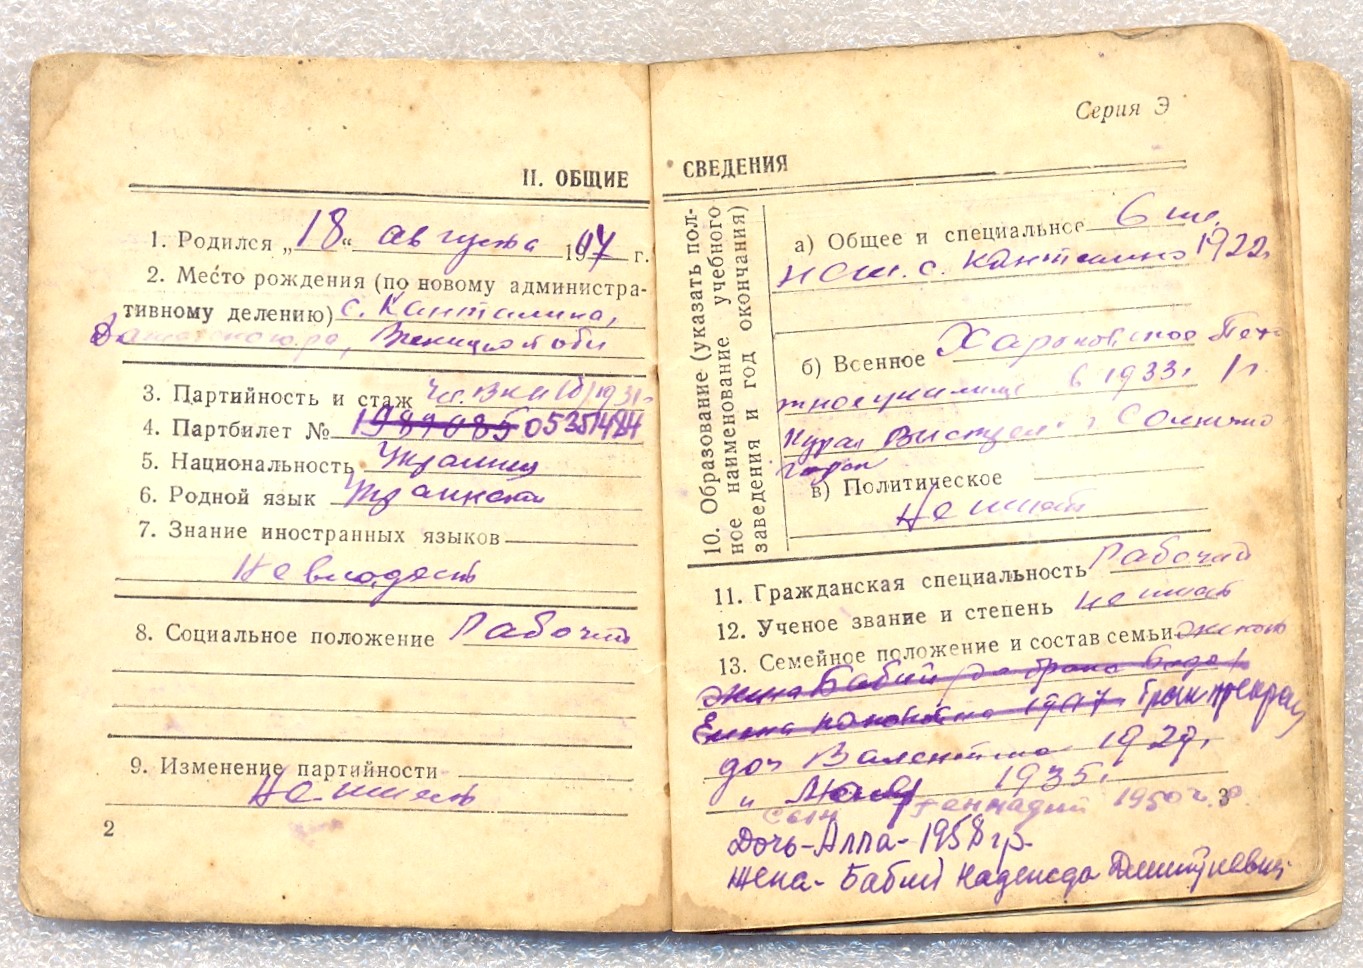 Серия Э
II. ОБЩИЕ СВЕДЕНИЯ
1. Родился „18“ августа 19 7 г.
2. Место рождения (по новому администра-
тивному делению) с. Канталина,
обл
3. Партийность и стаж чл. ВКП(б) 1931 г
4. Партбилет № 05351484
5. Национальность Украинец
6. Родной язык Украинский
7. Знание иностранных языков
Не владеет
8. Социальное положение Рабочий
9. Изменение партийности
Не имел
2
10. Образование (указать пол-
ное наименование учебного
заведения и год окончания)
а) Общее и специальное 6 кл.
с. Канталино 1922г
б) Военное Харьковское Пех
училище в 1933г.
Курсы Выстрел г Солнечно
горск
в) Политическое
Не имеет
11. Гражданская специальность Рабочий
12. Ученое звание и степень Не имеет
13. Семейное положение и состав семьи Женат
жена Бабий (до брака
Елена 1917 Брак прекращ
доч Валентина 1929г,
и 1935г.
3
сын Геннадий 1950 г. р.
Дочь-Алла-1958 гр.
Жена-Бабий Надежда Дмитриевна